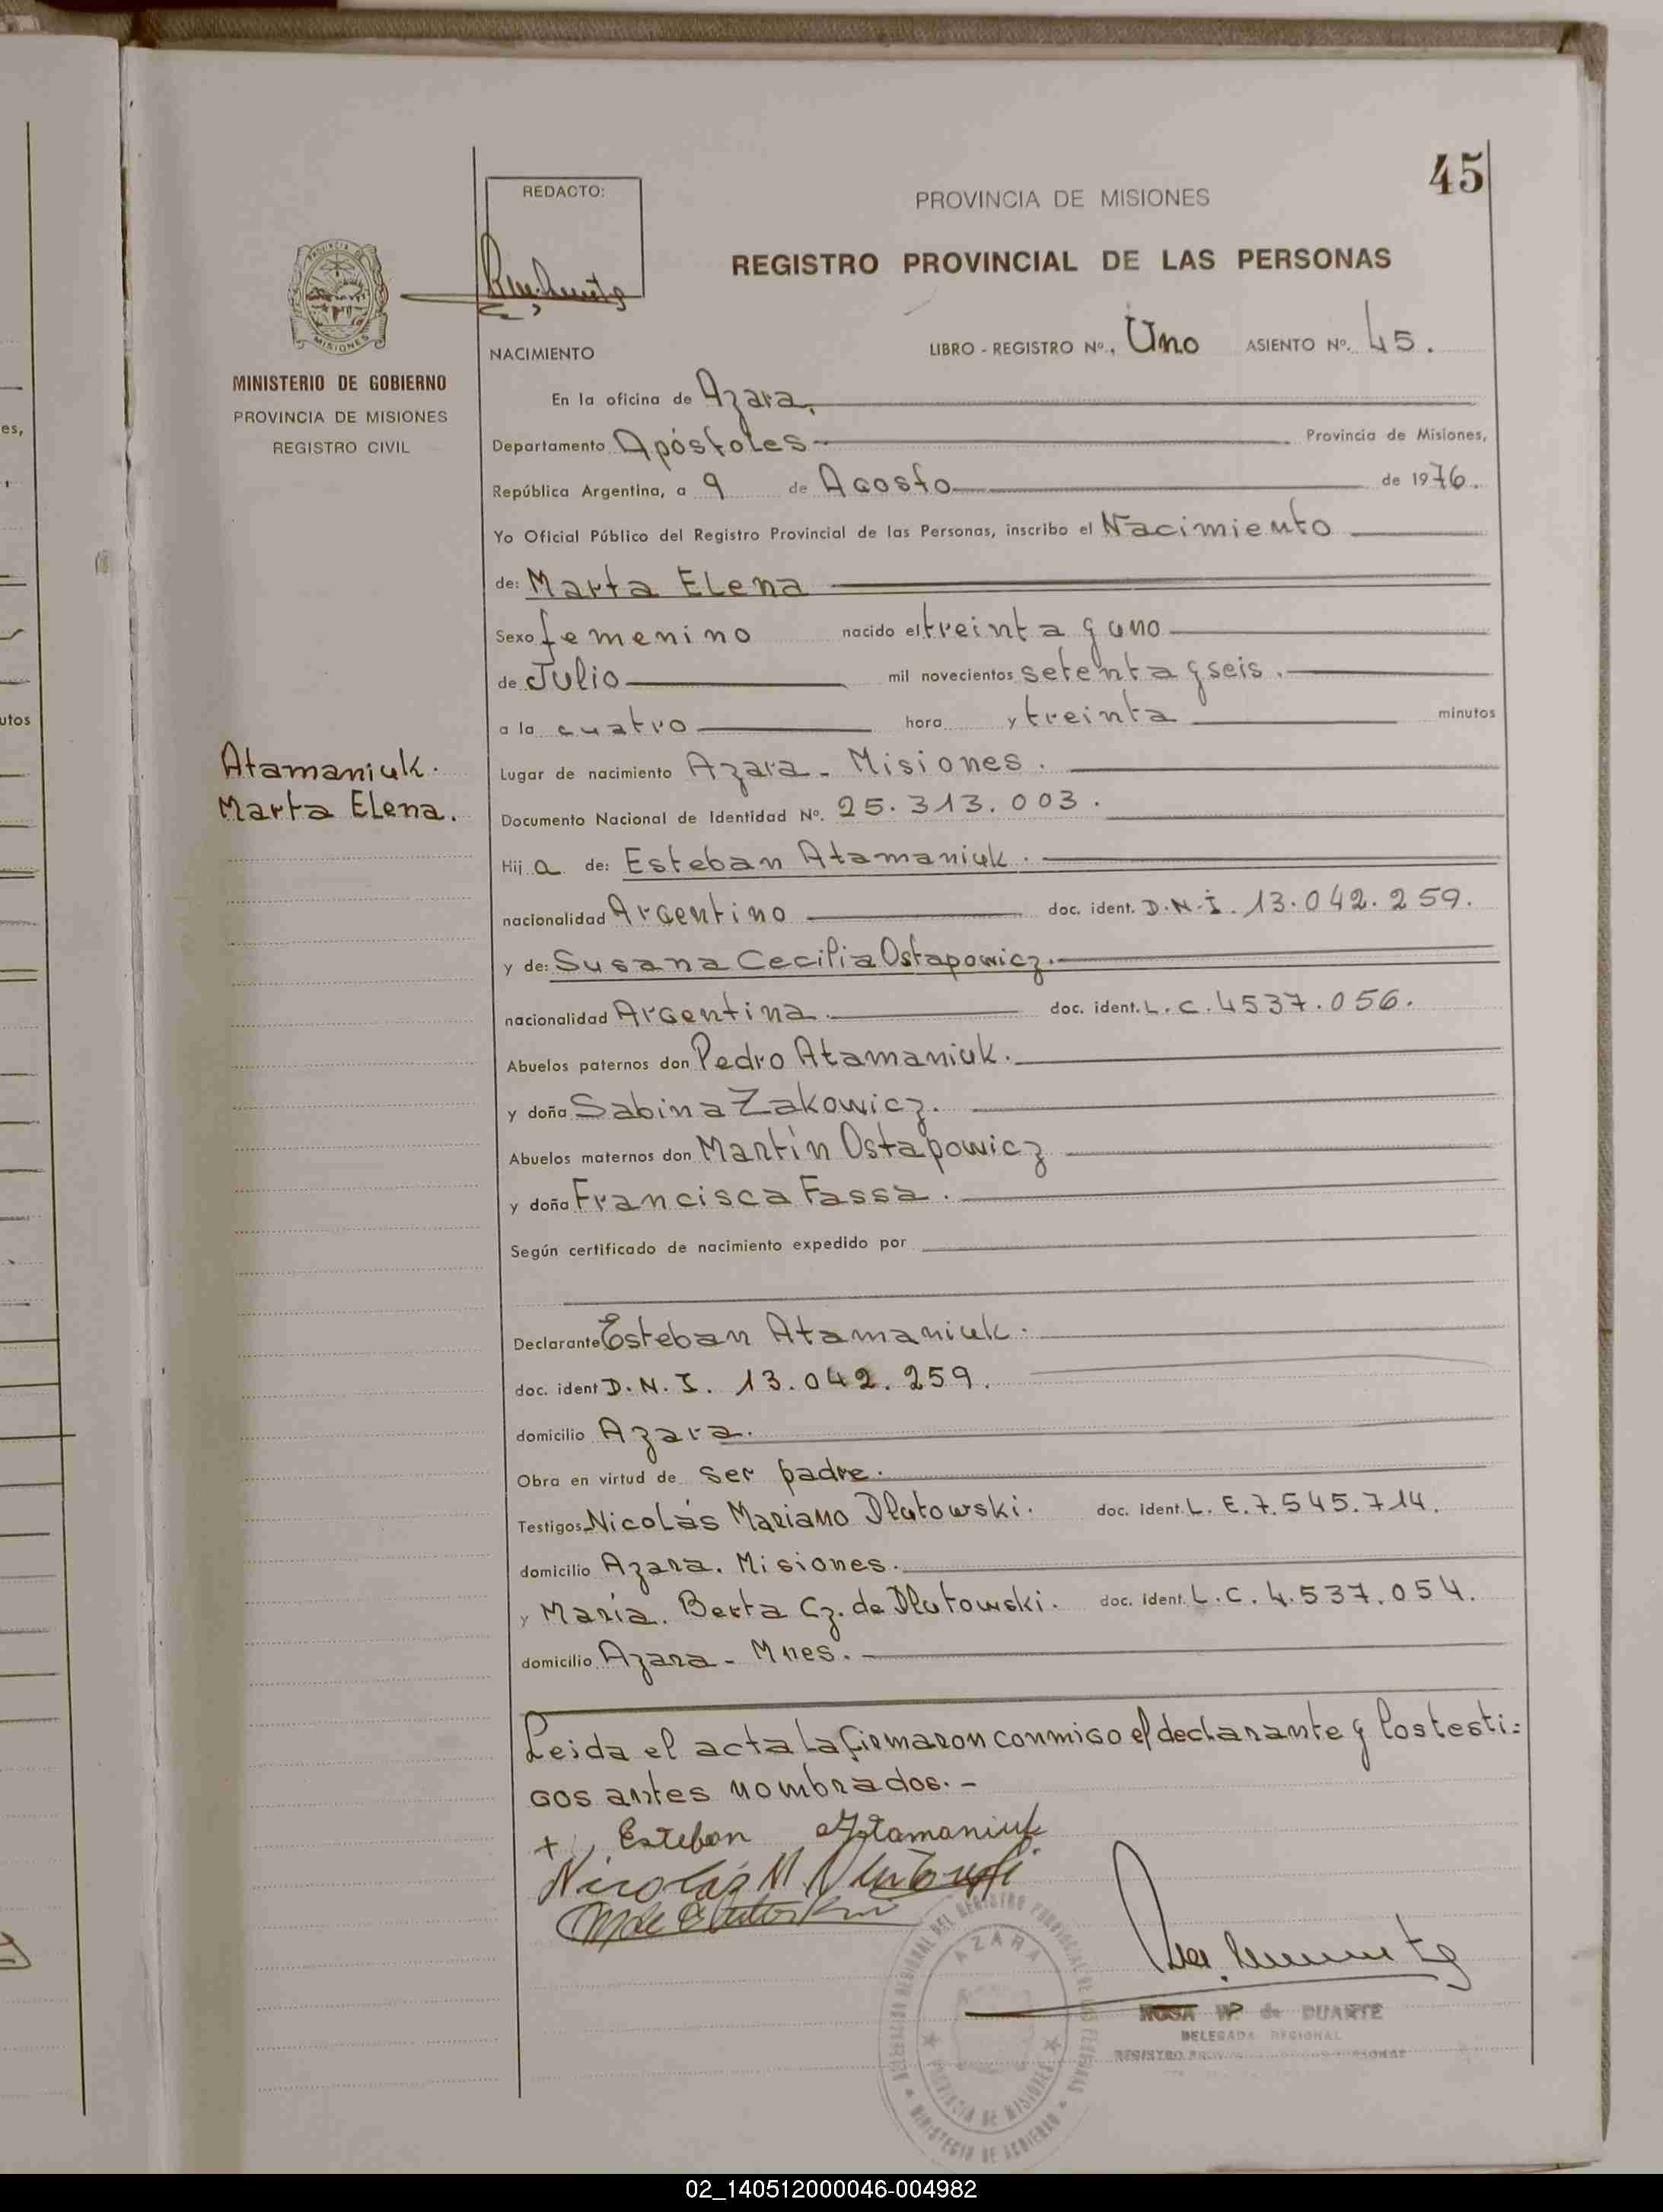 45
REDACTO:
PROVINCIA DE MISIONES
REGISTRO PROVINCIAL DE LAS PERSONAS
PROVINCIA
MISIONES
LIBRO - REGISTRO Nº., Uno ASIENTO Nº. 45.
NACIMIENTO
MINISTERIO DE GOBIERNO
PROVINCIA DE MISIONES
REGISTRO CIVIL
En la oficina de Azara.
Departamento Apóstoles Provincia de Misiones,
República Argentina, a 9 de Agosto de 1976.
Yo Oficial Público del Registro Provincial de las Personas, inscribo el Nacimiento
de: Marta Elena
Sexo femenino nacido el treinta y uno
de Julio mil novecientos setenta y seis.
a la cuatro hora y treinta minutos
Atamaniuk.
Marta Elena.
Lugar de nacimiento Azara - Misiones.
Documento Nacional de Identidad Nº. 25.313.003.
Hij a de: Esteban Atamaniuk.
nacionalidad Argentino doc. ident. D.N.I. 13.042.259.
y de: Susana Cecilia Ostapowicz.
nacionalidad Argentina. doc. ident. L.C. 4537.056.
Abuelos paternos don Pedro Atamaniuk.
y doña Sabina Zakowicz.
Abuelos maternos don Martín Ostapowicz
y doña Francisca Fassa.
Según certificado de nacimiento expedido por
Declarante Esteban Atamaniuk.
doc. ident D.N.I. 13.042.259.
domicilio Azara.
Obra en virtud de ser padre.
Testigos Nicolás Mariano Dlutowski. doc. ident. L.E. 7.545.714.
domicilio Azara. Misiones.
y María. Berta Cz. de Dlutowski. doc. ident. L.C. 4.537.054.
domicilio Azara - Mnes.
Leida el acta la firmaron conmigo el declarante y los testi=
gos antes nombrados. -
+ Esteban Atamaniuk
Nicolás M. Dlutowski
AZARA
PROVINCIA DE MISIONES
MINISTERIO DE GOBIERNO
ROSA Wº de DUARTE
DELEGADA REGIONAL
es,
utos
02_140512000046-004982